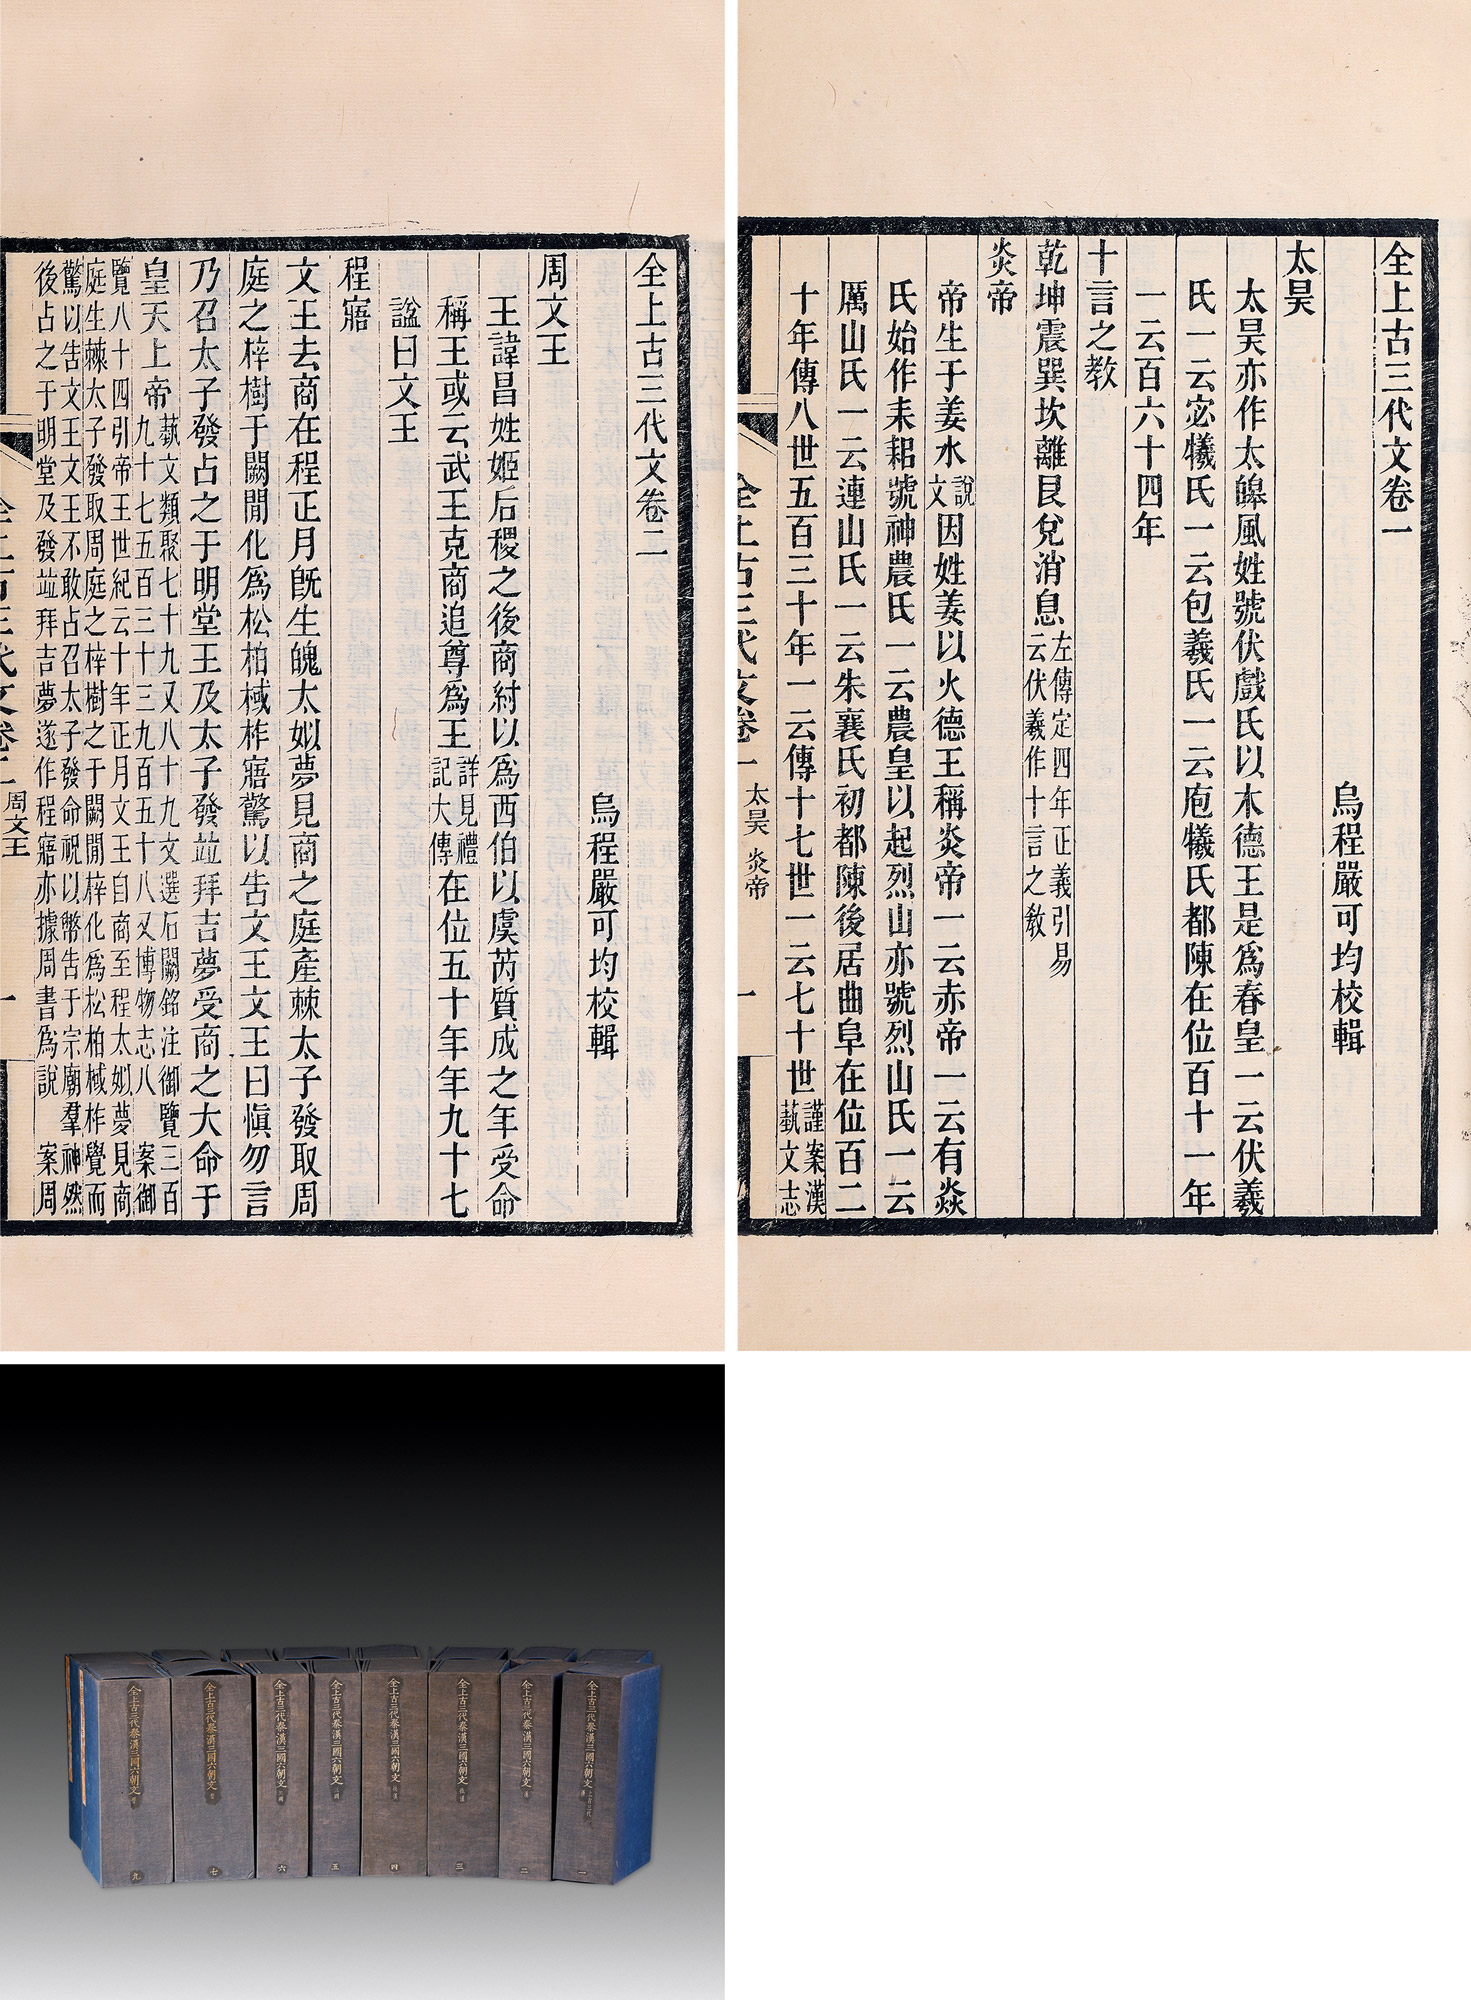 全上古三代文卷一
烏程嚴可均校輯
太昊
太昊亦作太皞風姓號伏戲氏以木德王是爲春皇一云伏羲
氏一云宓犧氏一云包羲氏一云庖犧氏都陳在位百十一年
一云百六十四年
十言之教
乾坤震巽坎離艮兌消息左傳定四年正義引易云伏羲作十言之敎
炎帝
帝生于姜水說文因姓姜以火德王稱炎帝一云赤帝一云有焱
氏始作耒耜號神農氏一云農皇以起烈山亦號烈山氏一云
厲山氏一云連山氏一云朱襄氏初都陳後居曲阜在位百二
十年傳八世五百三十年一云傳十七世一云七十世謹案漢藝文志
全上古三代文卷一 太昊 炎帝 一
全上古三代文卷二
烏程嚴可均校輯
周文王
王諱昌姓姬后稷之後商紂以爲西伯以虞芮質成之年受命
稱王或云武王克商追尊爲王詳見禮記大傳在位五十年年九十七
諡曰文王
程寤
文王去商在程正月旣生魄太姒夢見商之庭產棘太子發取周
庭之梓樹于闕閒化爲松柏棫柞寤驚以告文王文王曰愼勿言
乃召太子發占之于明堂王及太子發竝拜吉夢受商之大命于
皇天上帝藝文類聚七十九又八十九文選石闕銘注御覽三百九十七五百三十三九百五十八又博物志八 案御
覽八十四引帝王世紀云十年正月文王自商至程太姒夢見商庭生棘太子發取周庭之梓樹之于闕閒梓化爲松柏棫柞覺而
驚以告文王文王不敢占召太子發命祝以幣告于宗廟羣神然後占之于明堂及發竝拜吉夢遂作程寤亦據周書爲說 案周
全上古三代文卷二 周文王 一
全上古三代秦漢三國六朝文 上古三代 一
全上古三代秦漢三國六朝文 漢 二
全上古三代秦漢三國六朝文 後漢 三
全上古三代秦漢三國六朝文 後漢 四
全上古三代秦漢三國六朝文 三國 五
全上古三代秦漢三國六朝文 三國 六
全上古三代秦漢三國六朝文 晉 七
全上古三代秦漢三國六朝文 晉 九